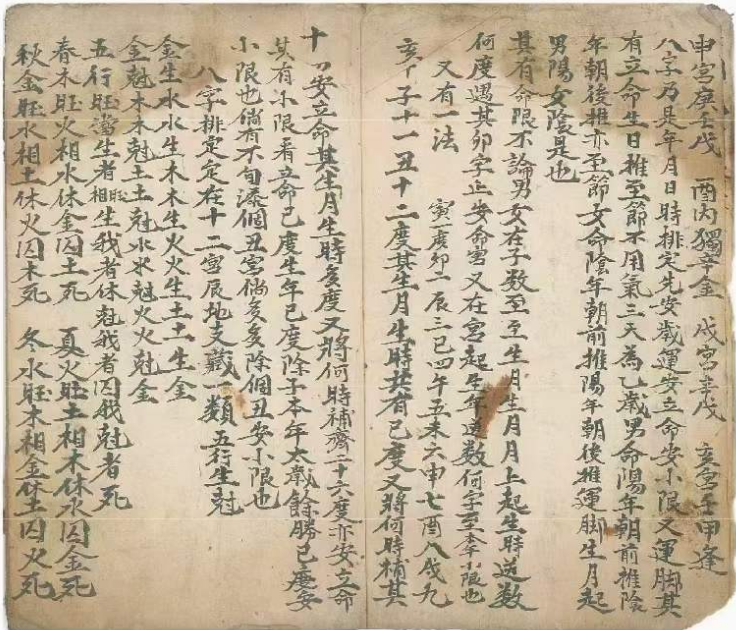 申宮庚壬戊　酉丙獨辛金　戌宮辛戊　亥宮壬甲逢
八字乃是年月日時排定先安歲運安立命安小限又運脚其
有立命生日推至節不用氣三天為乙歲男命陽年朝前推陰
年朝後推亦至節女命陰年朝前推陽年朝後推運脚生月起
男陽女陰是也
其有命限不論男女在子数至亖生月生月月上起生時送数
何度遇其卯字止安命宫又在宮起生年送数何字至本小限也
又有一法　寅一度卯二辰三巳四午五未六申七酉八戌九
亥十子十一丑十二度其生月生時共有已度又將何時補其
十安立命其生月生時多度又將何時補齊二十六度亦安立命
其有小限看立命已度生年已度除子本年太歲餘勝已度安
小限也倘有不旬添個丑宮倘多多除個丑安小限也
八字排定定在十二宮辰地支藏一類五行生尅
金生水水生木木生火火生土土生金
金尅木木尅土土尅水水尅火火尅金
五行旺當生者旺相生我者休尅我者囚我尅者死
春木旺火相水休金囚土死　夏火旺土相木休水囚金死
秋金旺水相土休火囚木死　冬水旺木相金休土囚火死